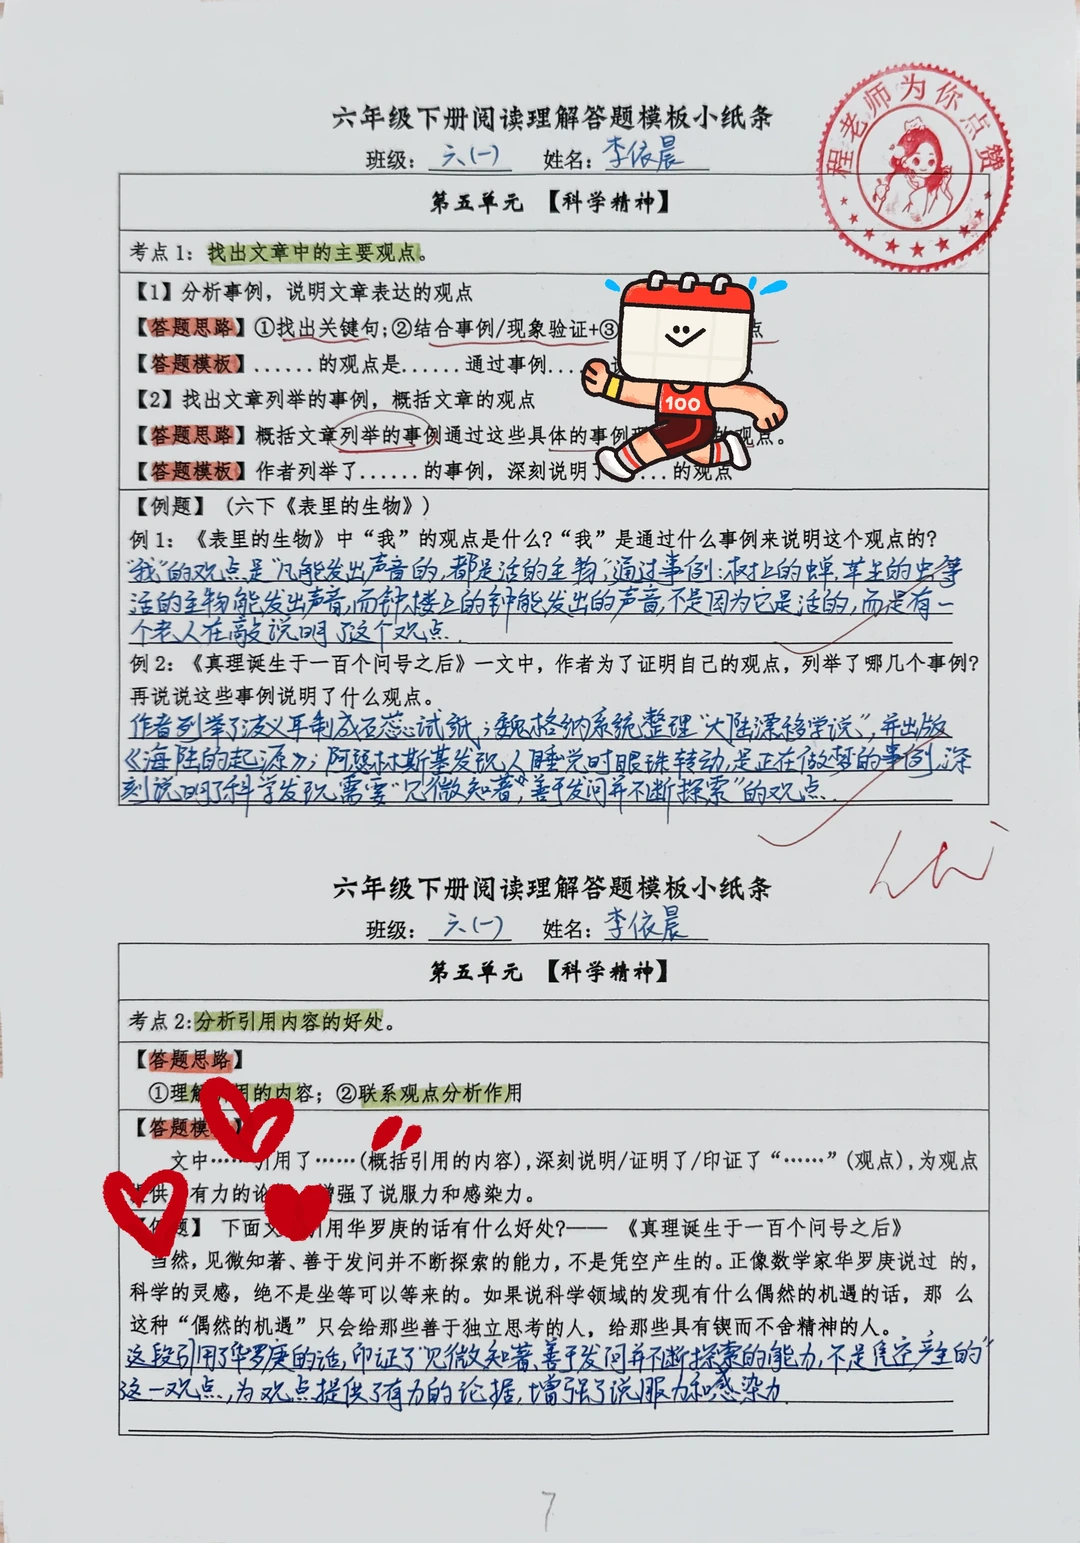 程老师为你点赞
六年级下册阅读理解答题模板小纸条
班级：六(一) 姓名：李依晨
第五单元 【科学精神】
考点1：找出文章中的主要观点。
【1】分析事例，说明文章表达的观点
【答题思路】①找出关键句；②结合事例/现象验证+③ 点
【答题模板】......的观点是......通过事例....
【2】找出文章列举的事例，概括文章的观点
【答题思路】概括文章列举的事例通过这些具体的事例 的观点。
【答题模板】作者列举了......的事例，深刻说明了 ...的观点
100
【例题】（六下《表里的生物》）
例1：《表里的生物》中“我”的观点是什么？“我”是通过什么事例来说明这个观点的？
“我”的观点是“凡能发出声音的，都是活的生物”，通过事例：树上的蝉，草里的虫等
活的生物能发出声音，而钟楼上的钟能发出的声音，不是因为它是活的，而是有一
个老人在敲说明了这个观点.
例2：《真理诞生于一百个问号之后》一文中，作者为了证明自己的观点，列举了哪几个事例？
再说说这些事例说明了什么观点。
作者列举了波义耳制成石蕊试纸；魏格纳系统整理“大陆漂移学说”，并出版
《海陆的起源》；阿瑟林斯基发现人睡觉时眼珠转动，是正在做梦的事例，深
刻说明了科学发现需要“见微知著，善于发问并不断探索”的观点.
六年级下册阅读理解答题模板小纸条
班级：六(一) 姓名：李依晨
第五单元 【科学精神】
考点2：分析引用内容的好处。
【答题思路】
①理解引用的内容；②联系观点分析作用
【答题模
文中……引用了……(概括引用的内容)，深刻说明/证明了/印证了“……”(观点)，为观点
提供 有力的论 增强了说服力和感染力。
【例题】 下面文 引用华罗庚的话有什么好处？—— 《真理诞生于一百个问号之后》
当然，见微知著、善于发问并不断探索的能力，不是凭空产生的。正像数学家华罗庚说过 的，
科学的灵感，绝不是坐等可以等来的。如果说科学领域的发现有什么偶然的机遇的话，那 么
这种“偶然的机遇”只会给那些善于独立思考的人，给那些具有锲而不舍精神的人。
这段引用了华罗庚的话，印证了“见微知著、善于发问并不断探索的能力，不是凭空产生的”
这一观点，为观点提供了有力的论据，增强了说服力和感染力.
7